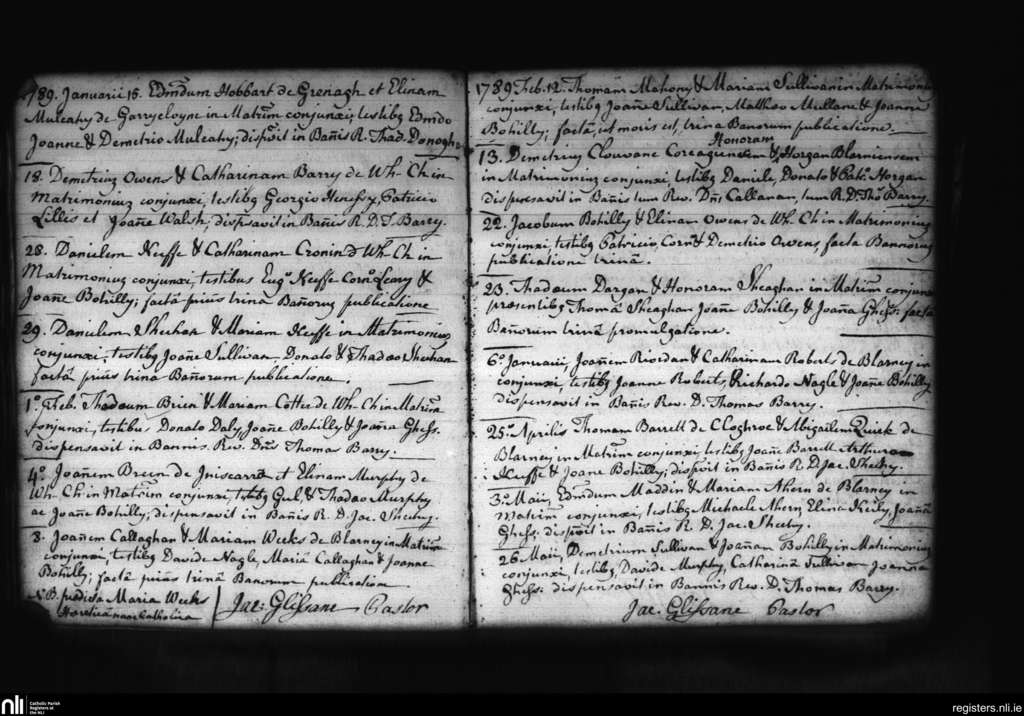 1789. Januarii 15. Edmdum Hobbart de Grenagh et Elinam
Mulcahy de Garrycloyne in Matrim conjunxi, testibq Edmdo
Joanne & Demetrio Mulcahy; dispvit in Bañis R. Thad. Donogh
18. Demetrius Owens & Catharinam Barry de Wh. Ch in
Matrimonium conjunxi, testibq Georgio Patricio
Lillis et Joañe Walsh, dispsavit in Bañis R. D. T. Barry.
28. Danielem Keffe & Catharinam Cronin d Wh. Ch in
Matrimonium conjunxi, testibus Eugo Keffe Corno Leary &
Joañe Bohilly; factâ prius trina Bañorum publicatione
29. Danielem Sheehan & Mariam Keffe in Matrimonium
conjunxi, testibq Joañe Sullivan, Donato & Thadao Sheehan
factâ prius trina Bañorum publicatione.
1o. Feb. Thadæum Brien & Mariam Cotter de Wh. Ch in Matrim
conjunxi, testibus Donato Daly, Joañe Bohilly & Joaña Ghess.
dispensavit in Bannis Rev. Dnus Thomas Barry.
4o. Joañem Breen de Iniscarra et Elinam Murphy de
Wh. Ch in Matrim conjunxi, testibq Gul. & Thadao Murphy
ac Joañe Bohilly, dispensavit in Bañis R. D. Jac. Sheehy.
8. Joañem Callaghan & Mariam Weeks de Blarney in Matrim
conjunxi, testibq Davide Nagle, Maria Callaghan & Joanne
Bohilly; factâ prius trinâ Banorum publicatione
N.B. prædicta Maria Weeks
Hæretica Catholica
Jac: Glissane Pastor
1789 Feb. 12. Thomam Mahony & Mariam Sullivan in Matrimonium
conjunxi, testibq Joañe Sullivan, Matthæo Mullane & Joanne
Bohilly; factâ, ut moris est, trina Banorum publicatione.
Honoram
13. Demetrium Clouvane & Horgan Blarniensem
in Matrimonium conjunxi, testibq Daniele, Donato & Horgan
dispensavit in Bañis tum Rev. Dñs Callanan, tum R. D. Tho. Barry.
22. Jacobum Bohilly & Elinam Owens de Wh. Ch in Matrimonium
conjunxi, testibq Patricio, Corno & Demetrio Owens, facta Bannorum
publicatione trinâ.
23. Thadæum Dargan & Honoram Sheaghan in Matrim conjunxi
præsentibq Thomâ Sheaghan Joañe Bohilly & Joaña Ghess: factâ
Bañorum trinâ promulgatione.
6o. Januarii, Joañem Riordan & Catharinam Roberts de Blarney in
conjunxi, testibq Joanne Roberts, Richardo Nagle & Joañe Bohilly
dispensavit in Bañis Rev. D. Thomas Barry.
25o. Aprilis Thomam Barrett de Cloghroe & Abigailem Quirk de
Blarney in Matrim conjunxi testibq Joañe Barrett Arthuro
Keffe & Joane Bohilly; dispvit in Bañis R. D. Jac. Sheehy.
3o. Maii, Edmdum Maddin & Mariam Ahern de Blarney in
Matrim conjunxi, testibq Michaele Ahern, Elinâ Kiely, Joañâ
Ghess: dispvit in Bañis R. D. Jac. Sheehy.
26 Maii, Demetrium Sullivan & Joañam Bohilly in Matrimonium
conjunxi, testibq, Davide Murphy, Catharinâ Sullivan Joanna
Ghess: dispensavit in Bannis Rev. D. Thomas Barry.
Jac. Glissane Pastor
nli
Catholic Parish
Registers at
the NLI
registers.nli.ie